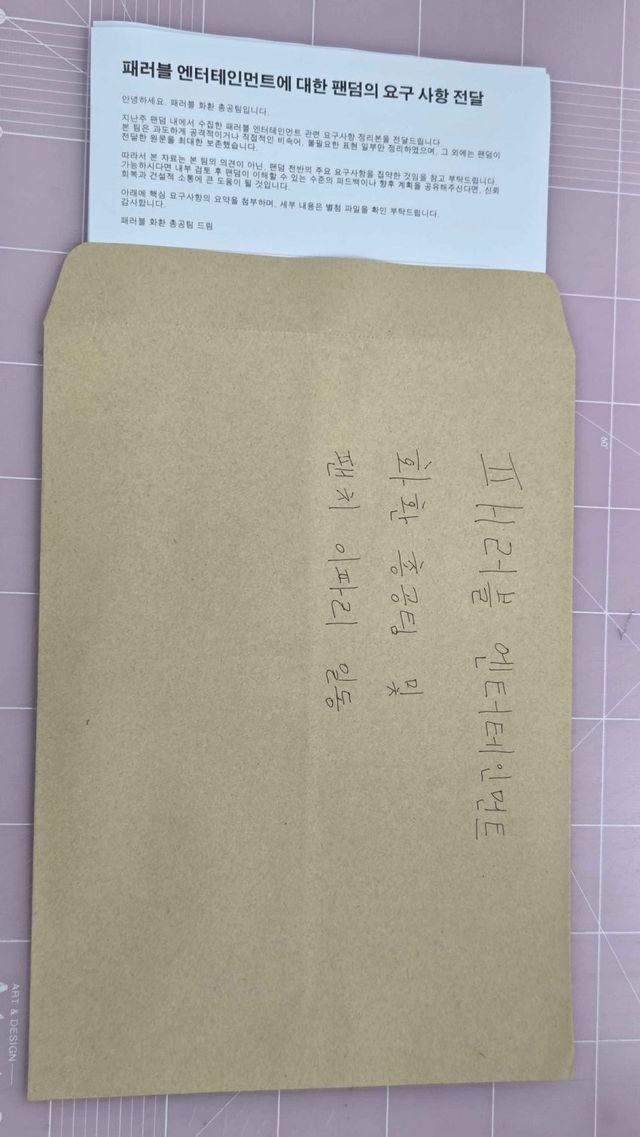 패러블 엔터테인먼트에 대한 팬덤의 요구 사항 전달
안녕하세요. 패러블 화환 총공팀입니다.
지난주 팬덤 내에서 수집한 패러블 엔터테인먼트 관련 요구사항 정리본을 전달드립니다.
본 팀은 과도하게 공격적이거나 직접적인 비속어, 불필요한 표현 일부만 정리하였으며, 그 외에는 팬덤이
전달한 원문을 최대한 보존했습니다.
따라서 본 자료는 본 팀의 의견이 아닌, 팬덤 전반의 주요 요구사항을 집약한 것임을 참고 부탁드립니다.
가능하시다면 내부 검토 후 팬덤이 이해할 수 있는 수준의 피드백이나 향후 계획을 공유해주신다면, 신뢰
회복과 건설적 소통에 큰 도움이 될 것입니다.
아래에 핵심 요구사항의 요약을 첨부하며, 세부 내용은 별첨 파일을 확인 부탁드립니다.
감사합니다.
패러블 화환 총공팀 드림
패러블 엔터테인먼트
화환 총공팀 및
팬치 이파리 일동
60
ART & DESIGN